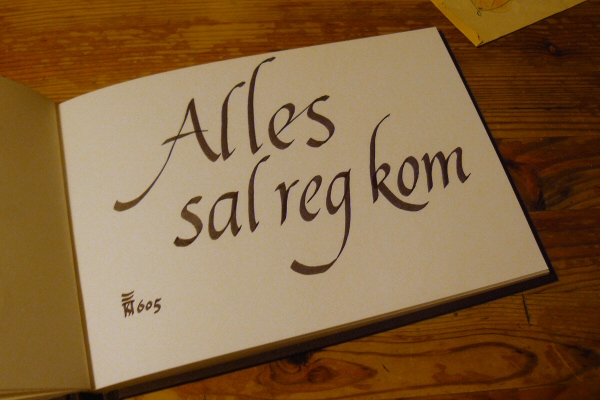 Alles
sal reg kom
605